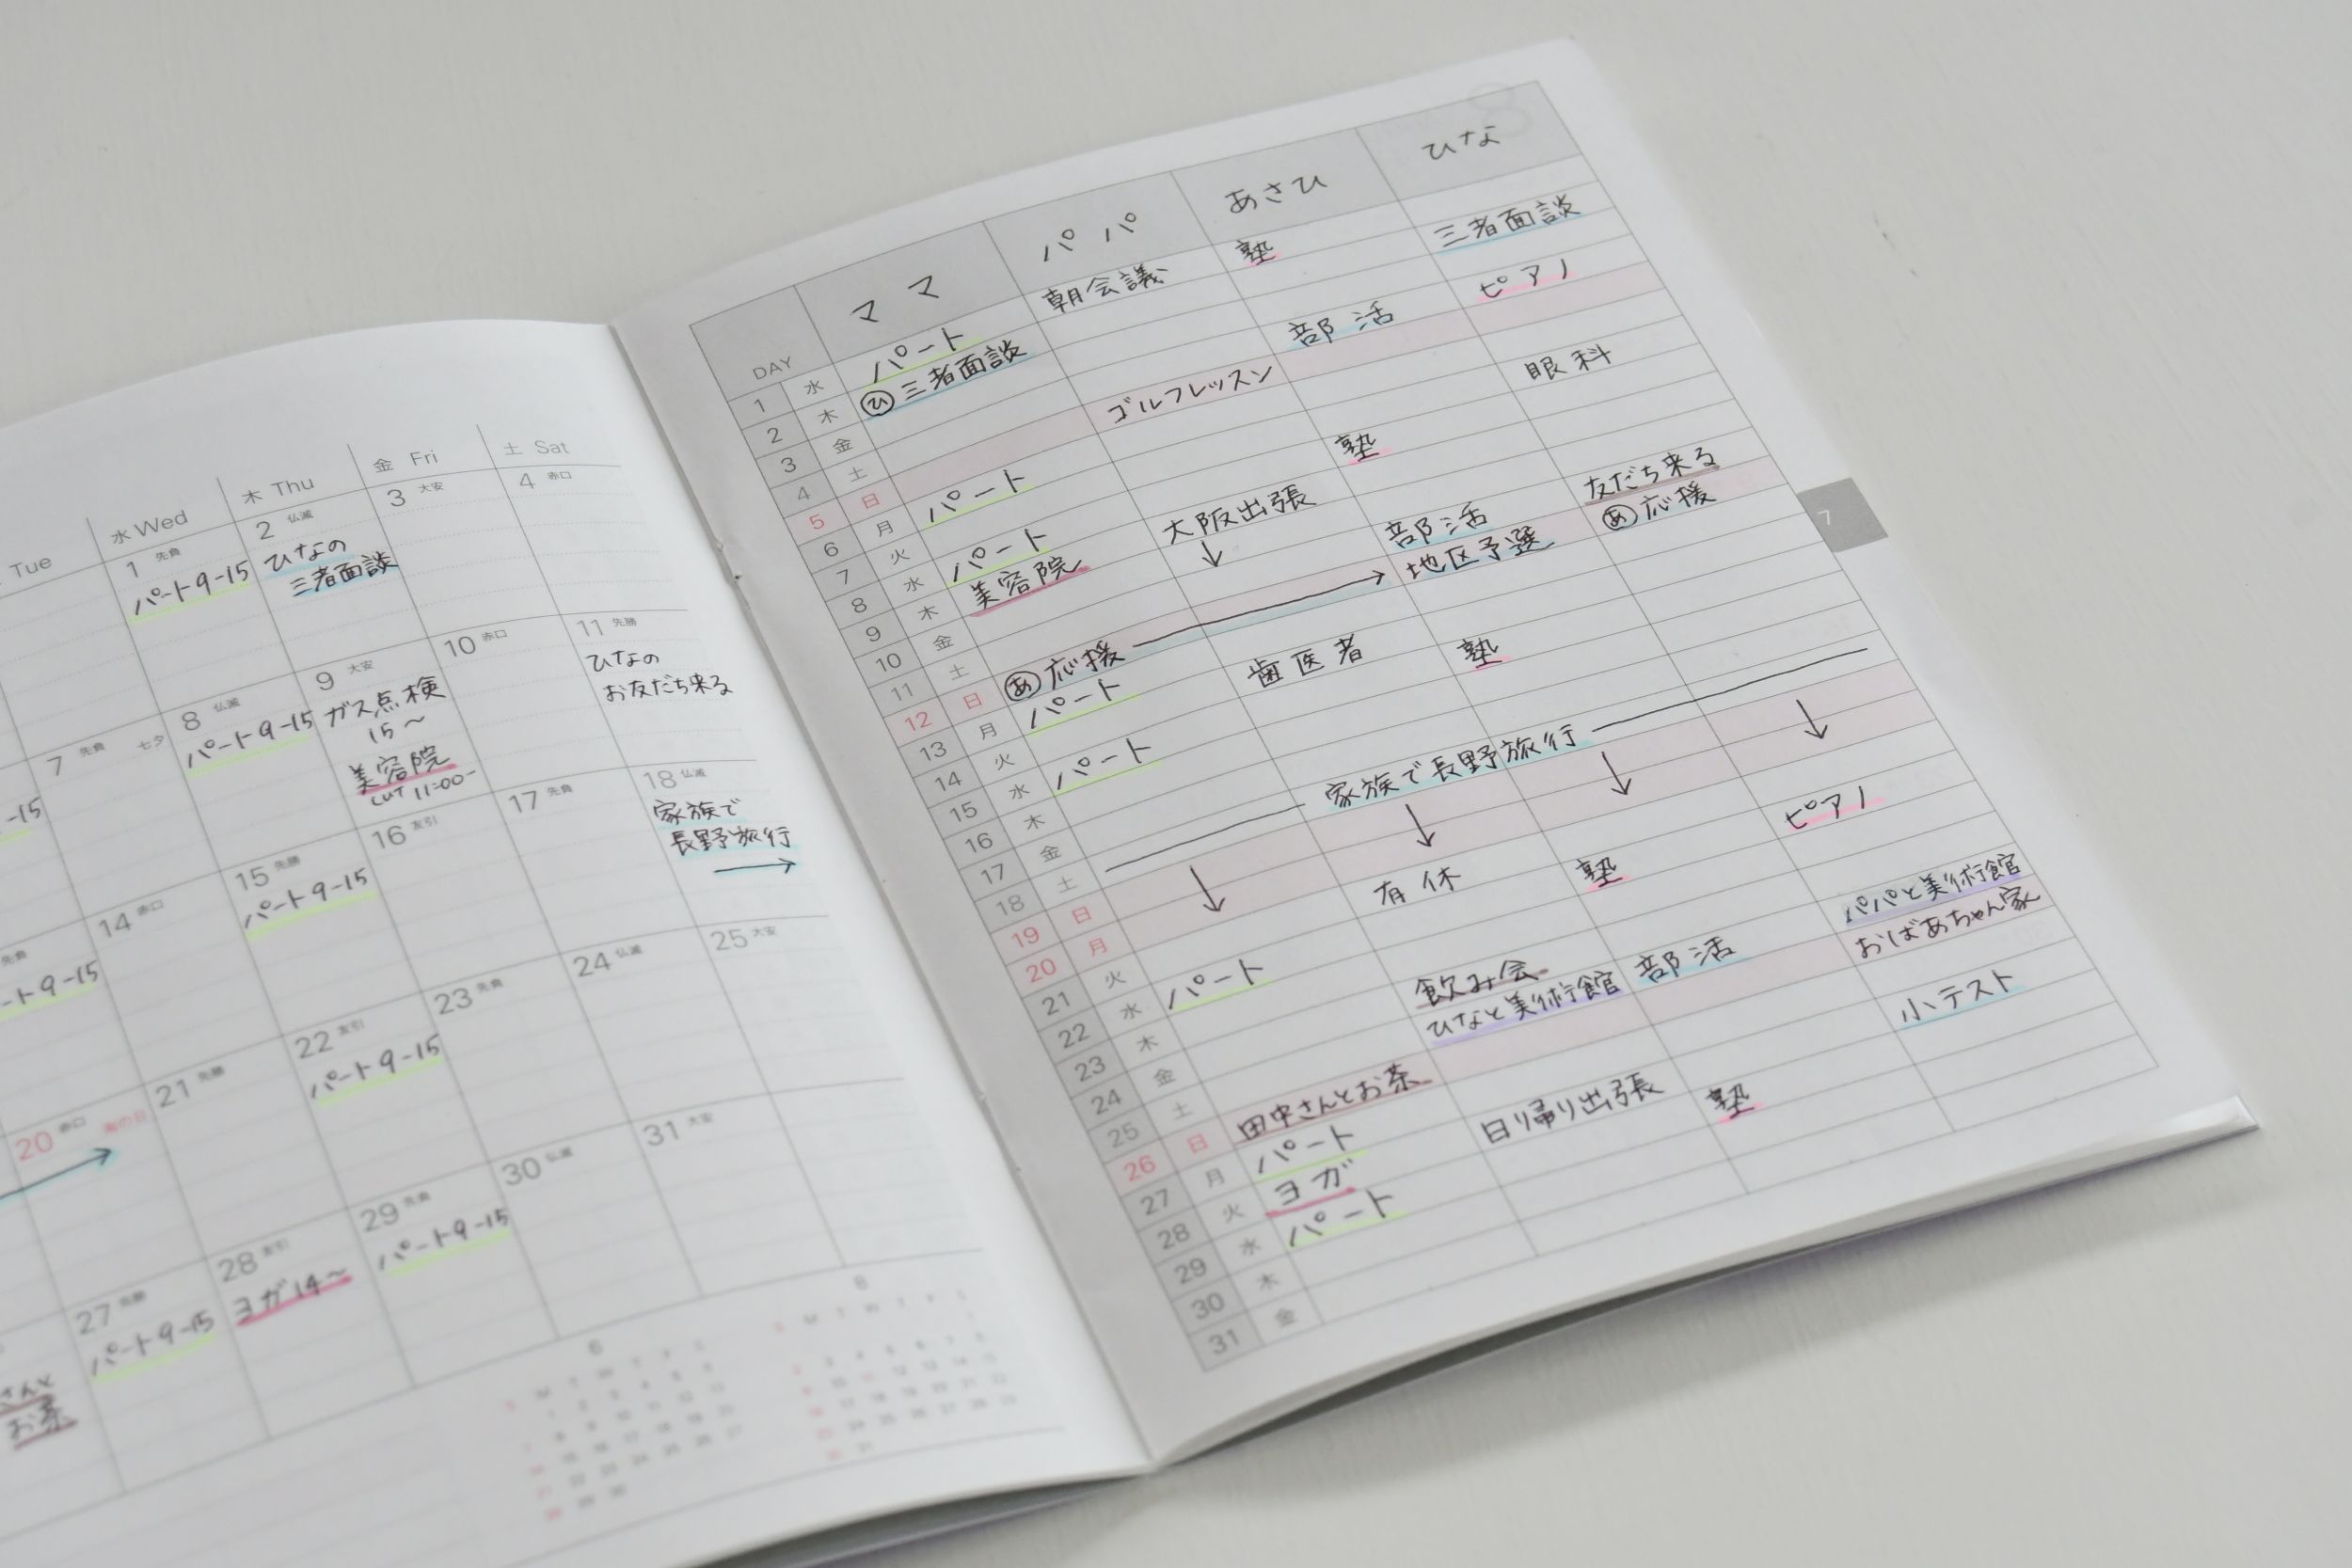 Tue
水 Wed
木 Thu
金 Fri
土 Sat
1 先負
パート9-15
2 仏滅
ひなの
三者面談
3 大安
4 赤口
-15
7 先負 七夕
8 仏滅
パート9-15
9 大安
ガス点検
15〜
美容院
cut 11:00-
10 赤口
11 先勝
ひなの
お友だち来る
ート9-15
14 赤口
15 先勝
パート9-15
16 友引
17 先負
18 仏滅
家族で
長野旅行
→
20 赤口 海の日
21 先勝
22 友引
パート9-15
23 先負
24 仏滅
25 大安
さんと
お茶
27 先勝
パート9-15
28 友引
ヨガ14〜
29 先負
パート9-15
30 仏滅
31 大安
6
8
DAY ママ パパ あさひ ひな
1 水 パート 朝会議 塾
2 木 ㋪三者面談 三者面談
3 金
4 土 部活 ピアノ
5 日 ゴルフレッスン
6 月 パート
7 火 眼科
8 水 パート 大阪出張 塾
9 木 美容院 ↓
10 金
11 土 部活 友だち来る
12 日 あ応援 → 地区予選 あ応援
13 月 パート
14 火 歯医者
15 水 パート 塾
16 木
17 金
18 土 家族で長野旅行
19 日 ↓ ↓ ↓ ↓
20 月
21 火 有休
22 水 パート 塾 ピアノ
23 木
24 金 飲み会
25 土 ひなと美術館 部活 パパと美術館
26 日 田中さんとお茶 おばあちゃん家
27 月 パート
28 火 ヨガ 日帰り出張 小テスト
29 水 パート 塾
30 木
31 金
7